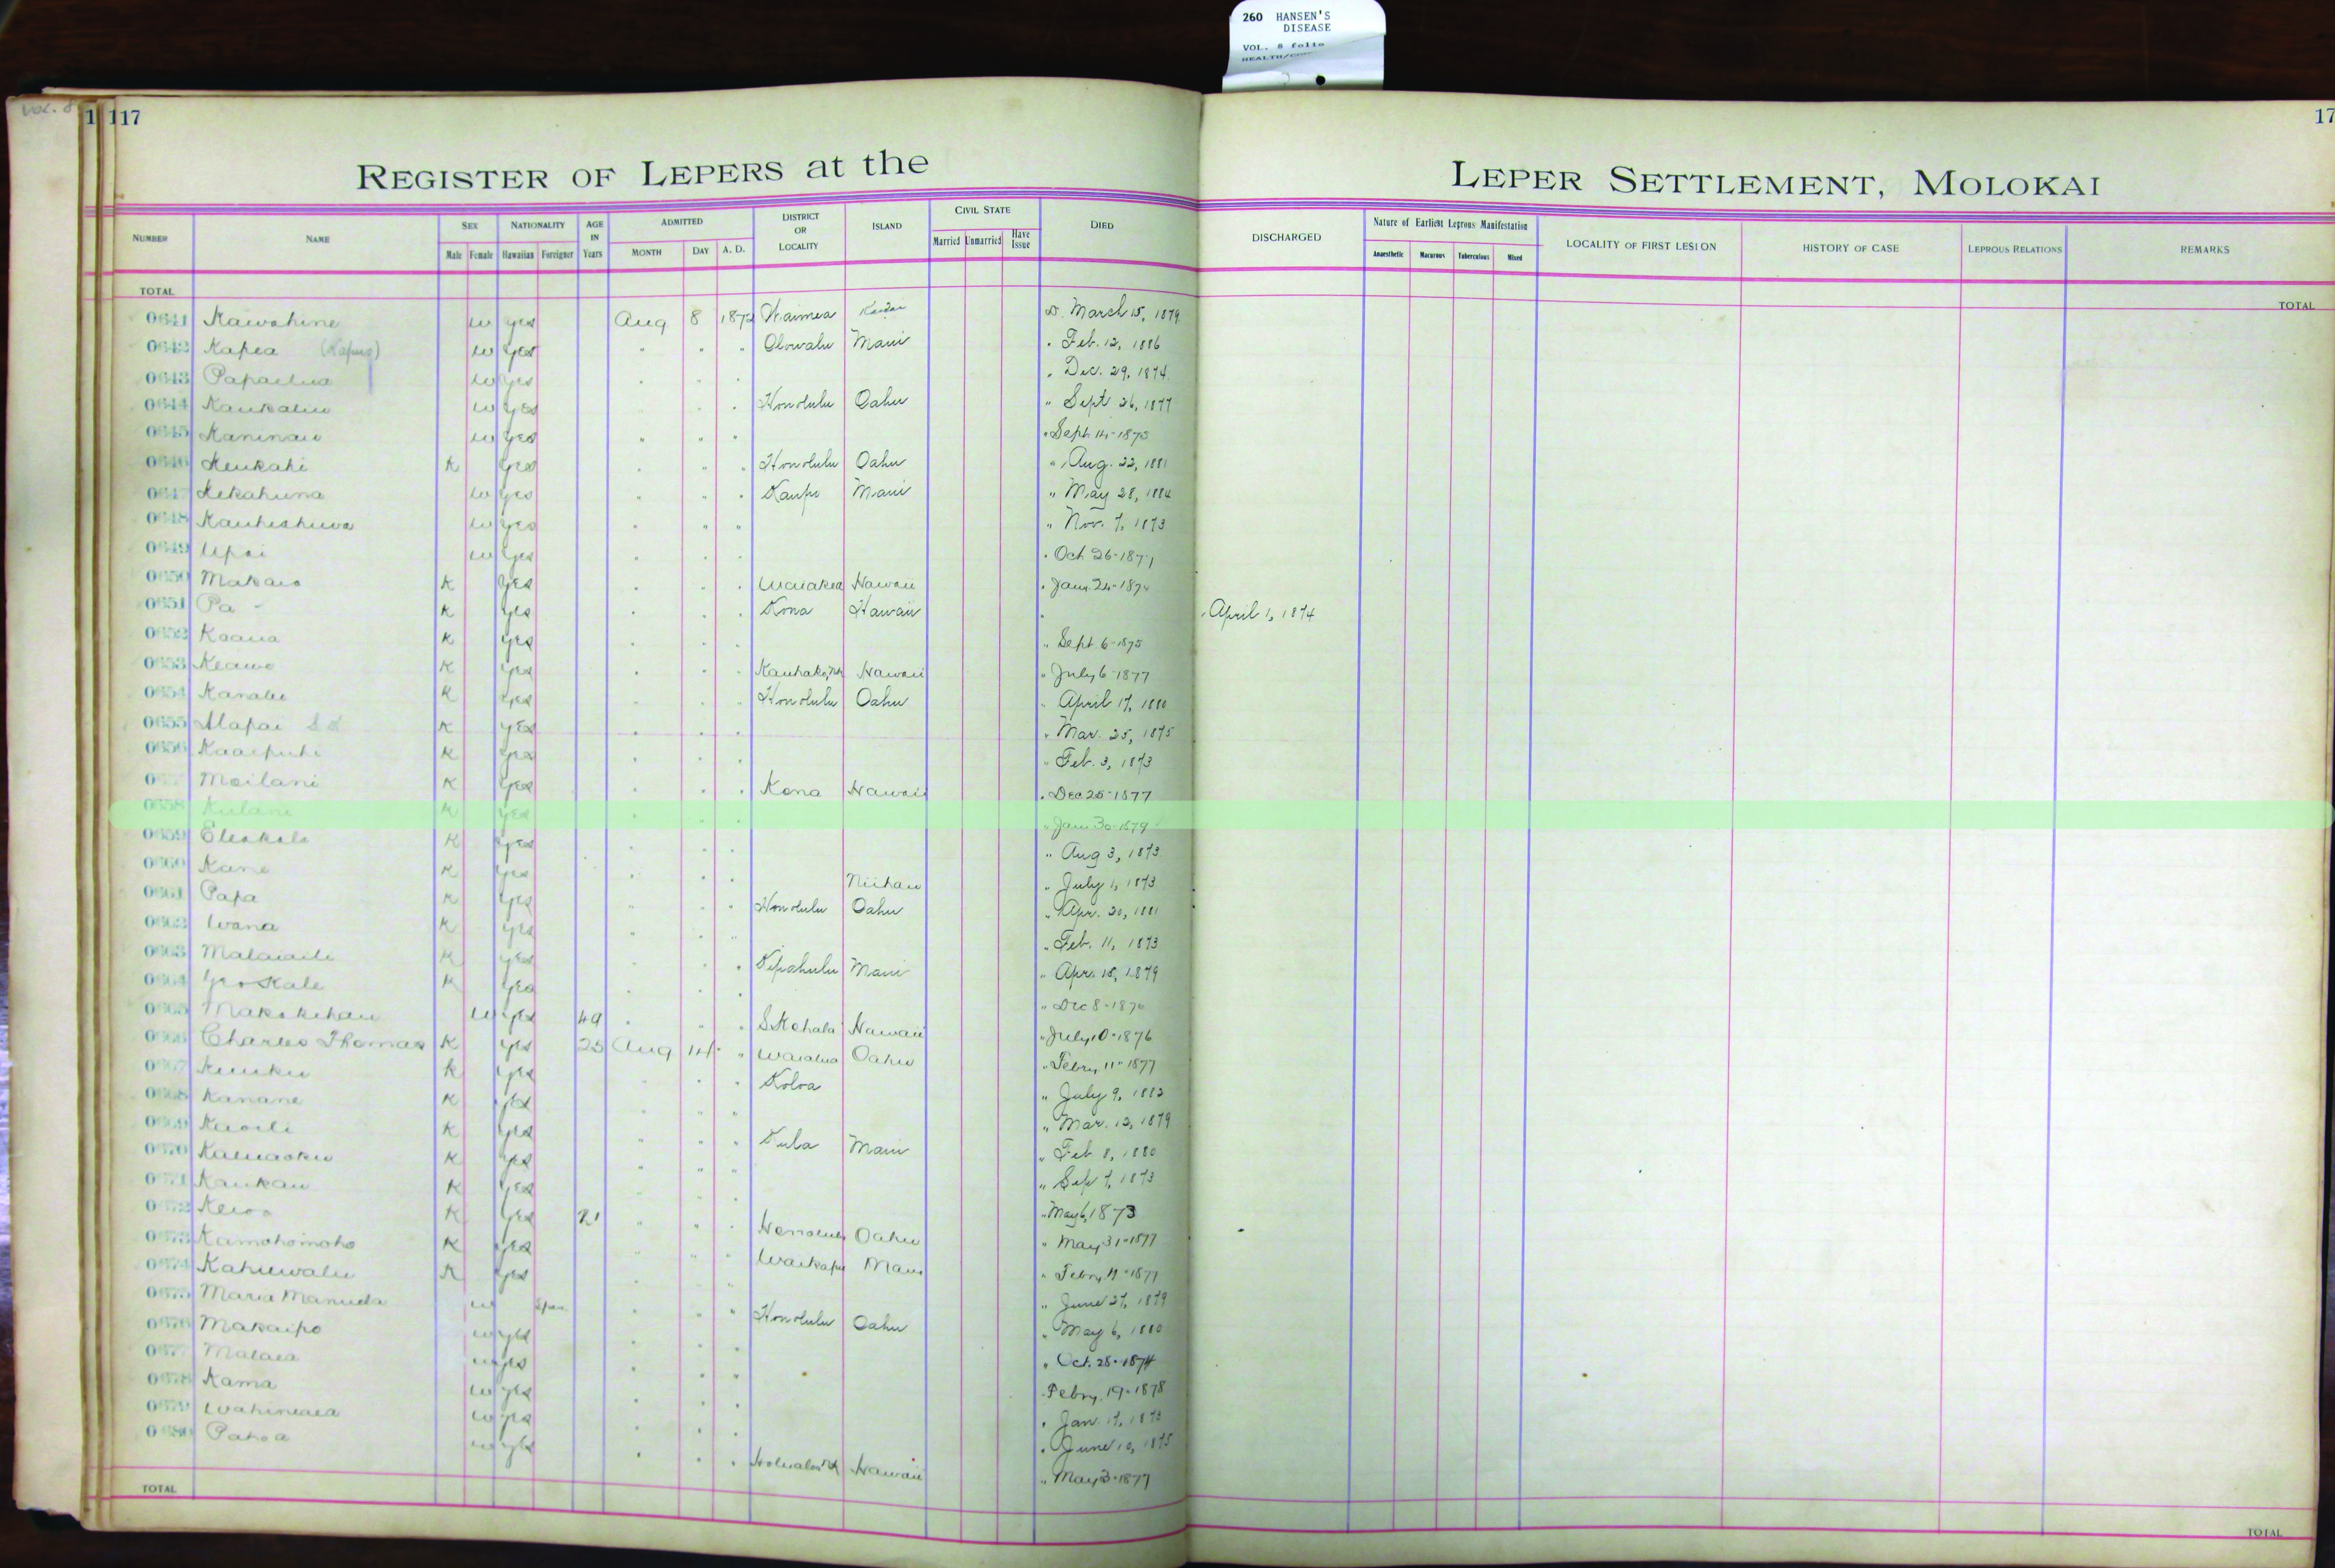 260 HANSEN'S
DISEASE
VOL. 8 folio
VOL. 8
1 117
17
REGISTER OF LEPERS at the LEPER SETTLEMENT, MOLOKAI
NUMBER NAME SEX Male Female NATIONALITY Hawaiian Foreigner AGE IN Years ADMITTED MONTH DAY A. D. DISTRICT OR LOCALITY ISLAND CIVIL STATE Married Unmarried Have Issue DIED DISCHARGED Nature of Earliest Leprous Manifestation Anaesthetic Macurous Tuberculous Mixed LOCALITY OF FIRST LESION HISTORY OF CASE LEPROUS RELATIONS REMARKS
TOTAL TOTAL
0641 Kawahine w yes Aug 8 Waimea Kauai D. March 15, 1879
0642 Kapea w yes " " " Olowalu Maui " Feb. 12, 1886
0643 w yes " " " " Dec. 29, 1874
0644 w yes " " Honolulu Oahu " Sept 26, 1877
0645 Kaninau w yes " " " " Sept 14-1875
0646 Keukahi K yes " " " Honolulu Oahu " Aug. 22, 1881
0647 Kekahuna w yes " " " Kaupo Maui " May 28, 1884
0648 w yes " " " " Nov. 7, 1873
0649 Upai w yes " " " " Oct 26-1871
0650 Makaio K yes " " " Waiakea Hawaii " Jany 24-1874
0651 Pa - K yes " " " Kona Hawaii " " April 1, 1874
0652 Koaua K yes " " " " Sept 6-1875
0653 Keawe K yes " " " Hawaii " July 6-1877
0654 Kanalu K yes " " " Honolulu Oahu " April 17, 1880
0655 Alapai K yes " " " " Mar. 25, 1875
0656 Kaaipuhi K yes " " " " Feb. 3, 1873
Moilani K yes " " " Kona Hawaii " Dec 25-1877
0658 Kulani K yes " " " " Jan 30-1879
0659 K yes " " " " Aug 3, 1873
0660 Kane K yes " " " Niihau " July 1, 1873
0661 Papa K yes " " " Honolulu Oahu " Apr. 20, 1881
0662 Wana K yes " " " " Feb. 11, 1873
0663 K yes " " " Kipahulu Maui " Apr. 15, 1879
0664 K yes " " " " Dec 8-1876
0665 Makakehau w yes 49 " " " S. Kohala Hawaii " July 10-1876
0666 Charles Thomas K yes 25 Aug 14 " Waialua Oahu " Febry 11-1877
0667 K yes " " " Koloa " July 9, 1882
0668 Kanane K yes " " " " Mar. 12, 1879
0669 Kuoili K yes " " " Kula Maui " Feb 8, 1880
0670 K yes " " " " Sep 7, 1873
0671 Kaukau K yes " " " " May 6, 1873
0672 K yes 21 " " " Honolulu Oahu " May 31-1877
0673 Kamohomoho K yes " " " Waikapu Maui " Febry 11-1877
0674 Kahiewalu K yes " " " " June 27, 1879
0675 Maria Manuela w Span. " " " Honolulu Oahu " May 6, 1880
0676 Makaipo w yes " " " " Oct. 28-1874
0677 Malaea w yes " " " Febry 19-1878
0678 Kama w yes " " " Jan. 17, 1873
0679 w yes " " " June 10, 1875
0680 Pahoa w yes " " " Hawaii " May 3-1877
TOTAL TOTAL